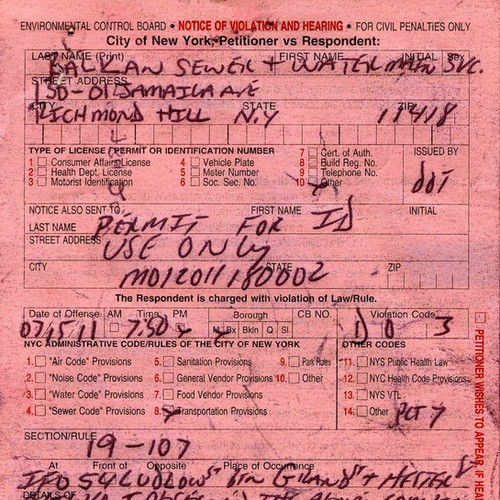 ENVIRONMENTAL CONTROL BOARD • NOTICE OF VIOLATION AND HEARING • FOR CIVIL PENALTIES ONLY
City of New York, Petitioner vs Respondent:
LAST NAME (Print) FIRST NAME INITIAL Sex
KALMAN SEWER + WATER MAIN SVC.
STREET ADDRESS
130-01 JAMAICA AVE
CITY STATE ZIP
RICHMOND HILL N.Y 11418
TYPE OF LICENSE/PERMIT OR IDENTIFICATION NUMBER ISSUED BY
1 Consumer Affairs License 4 Vehicle Plate 7 Cert. of Auth.
2 Health Dept. License 5 Meter Number 8 Build Reg. No.
3 Motorist Identification 6 Soc. Sec. No. 9 Telephone No.
10 Other
DOT
NOTICE ALSO SENT TO: FIRST NAME INITIAL
LAST NAME PERMIT FOR ID
STREET ADDRESS USE ONLY
CITY STATE ZIP
M012011180002
The Respondent is charged with violation of Law/Rule.
Date of Offense AM Time PM Borough CB NO. Violation Code
07/15/11 7:50 Mn Bx Bkln Q SI D 0 3
NYC ADMINISTRATIVE CODE/RULES OF THE CITY OF NEW YORK OTHER CODES
1. "Air Code" Provisions 5. Sanitation Provisions 9. Park Rules 11. NYS Public Health Law
2. "Noise Code" Provisions 6. General Vendor Provisions 10. Other 12. NYC Health Code Provisions
3. "Water Code" Provisions 7. Food Vendor Provisions 13. NYS VTL
4. "Sewer Code" Provisions 8. Transportation Provisions 14. Other
SECTION/RULE
19-107
At Front of Opposite Place of Occurrence
IFO 54 LUDLOW ST BTN GRAND ST + HESTER
DETAILS OF
PETITIONER WISHES TO APPEAR